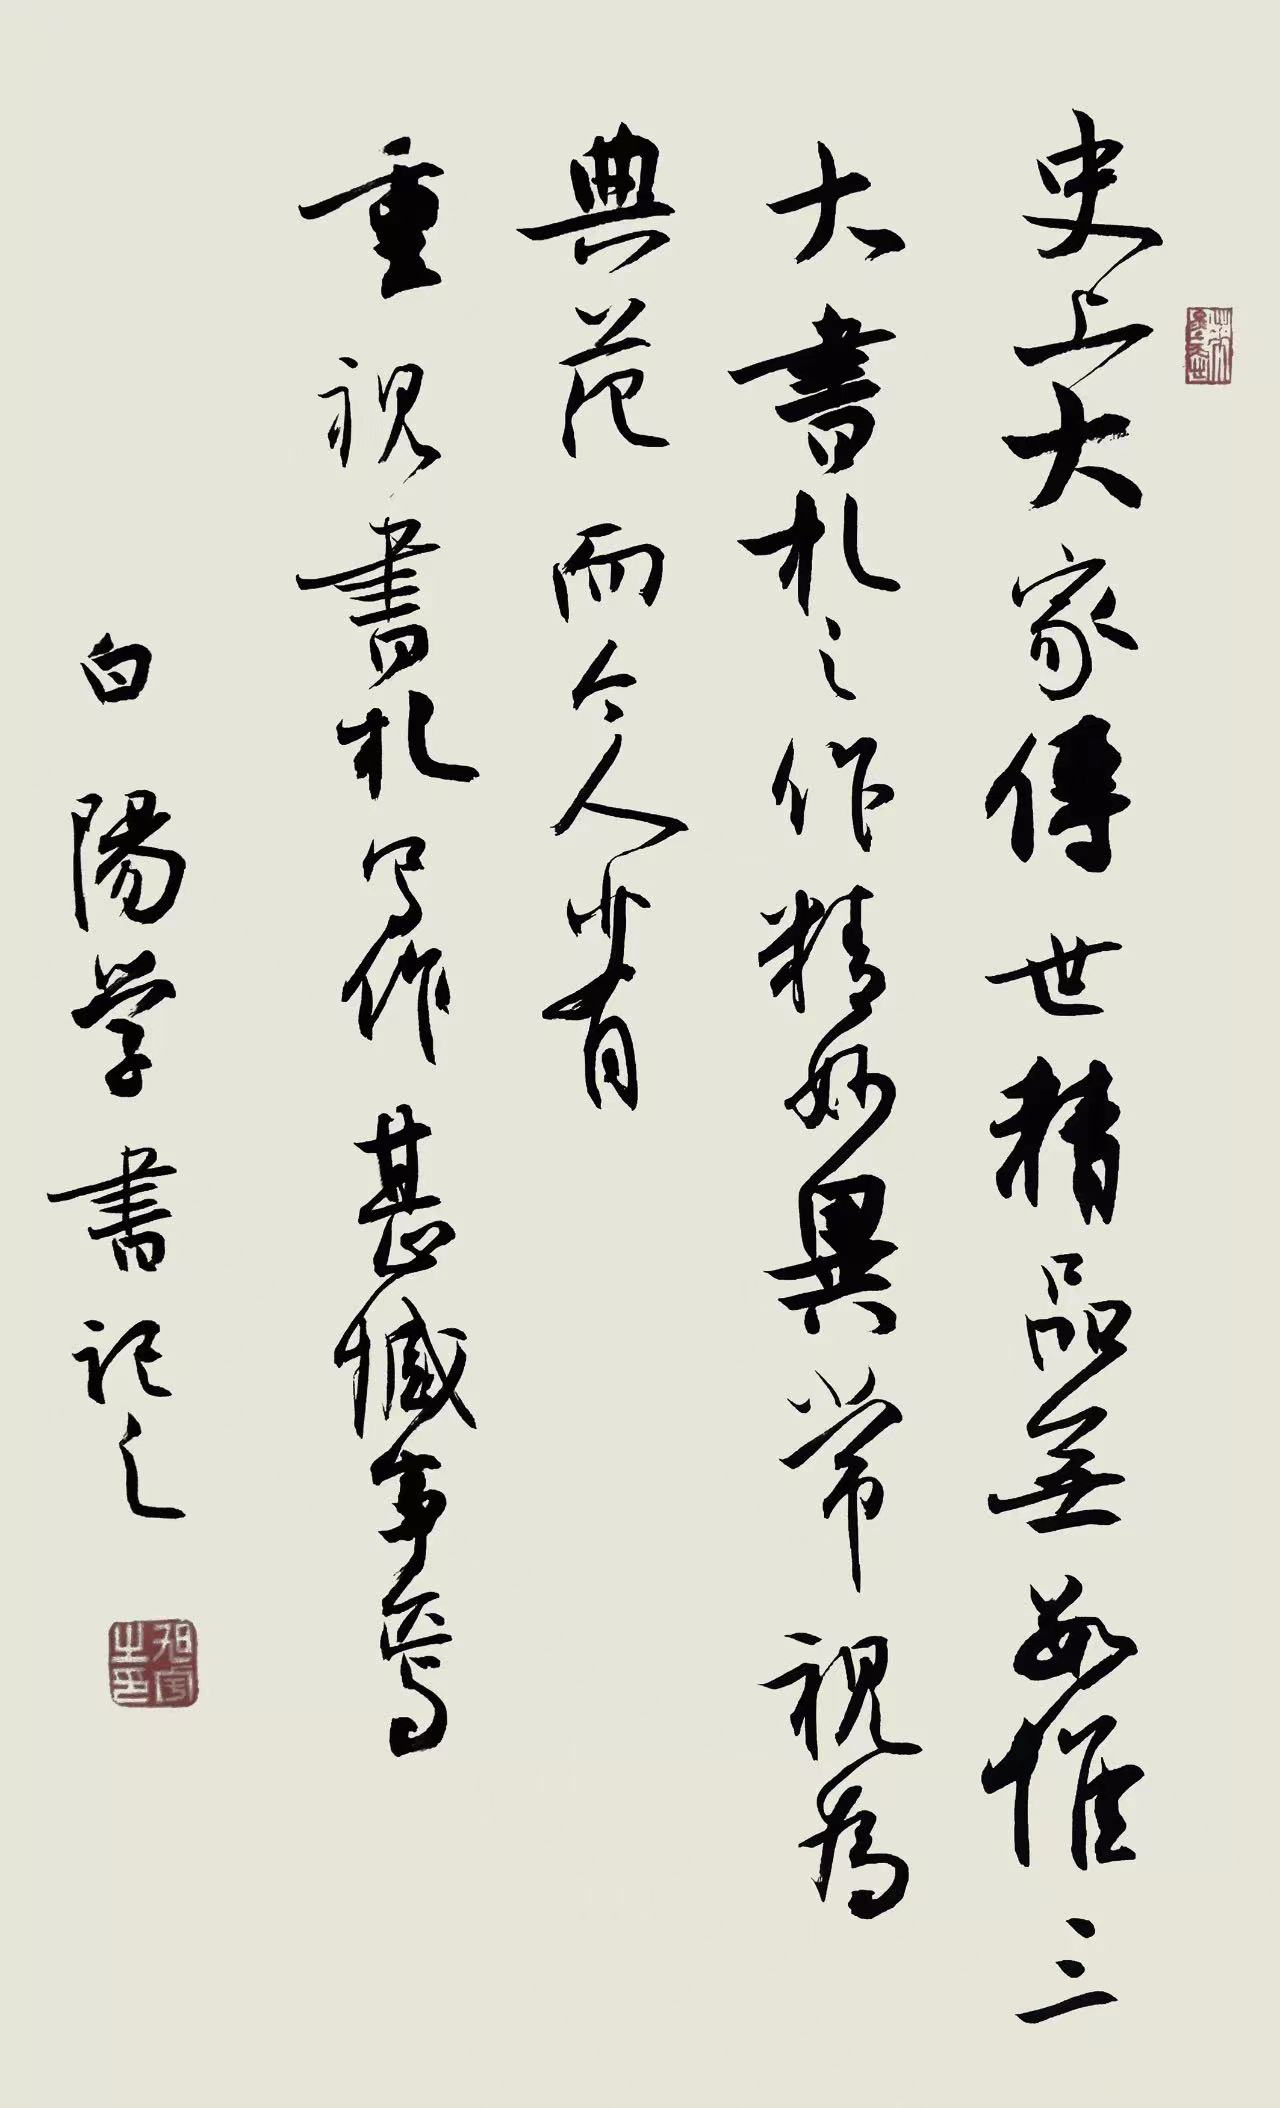 史上大家傳世精品無数惟三
大書札之作精妙異常視為
典范而今人少有
重視書札写作甚憾事焉
白陽学書記之